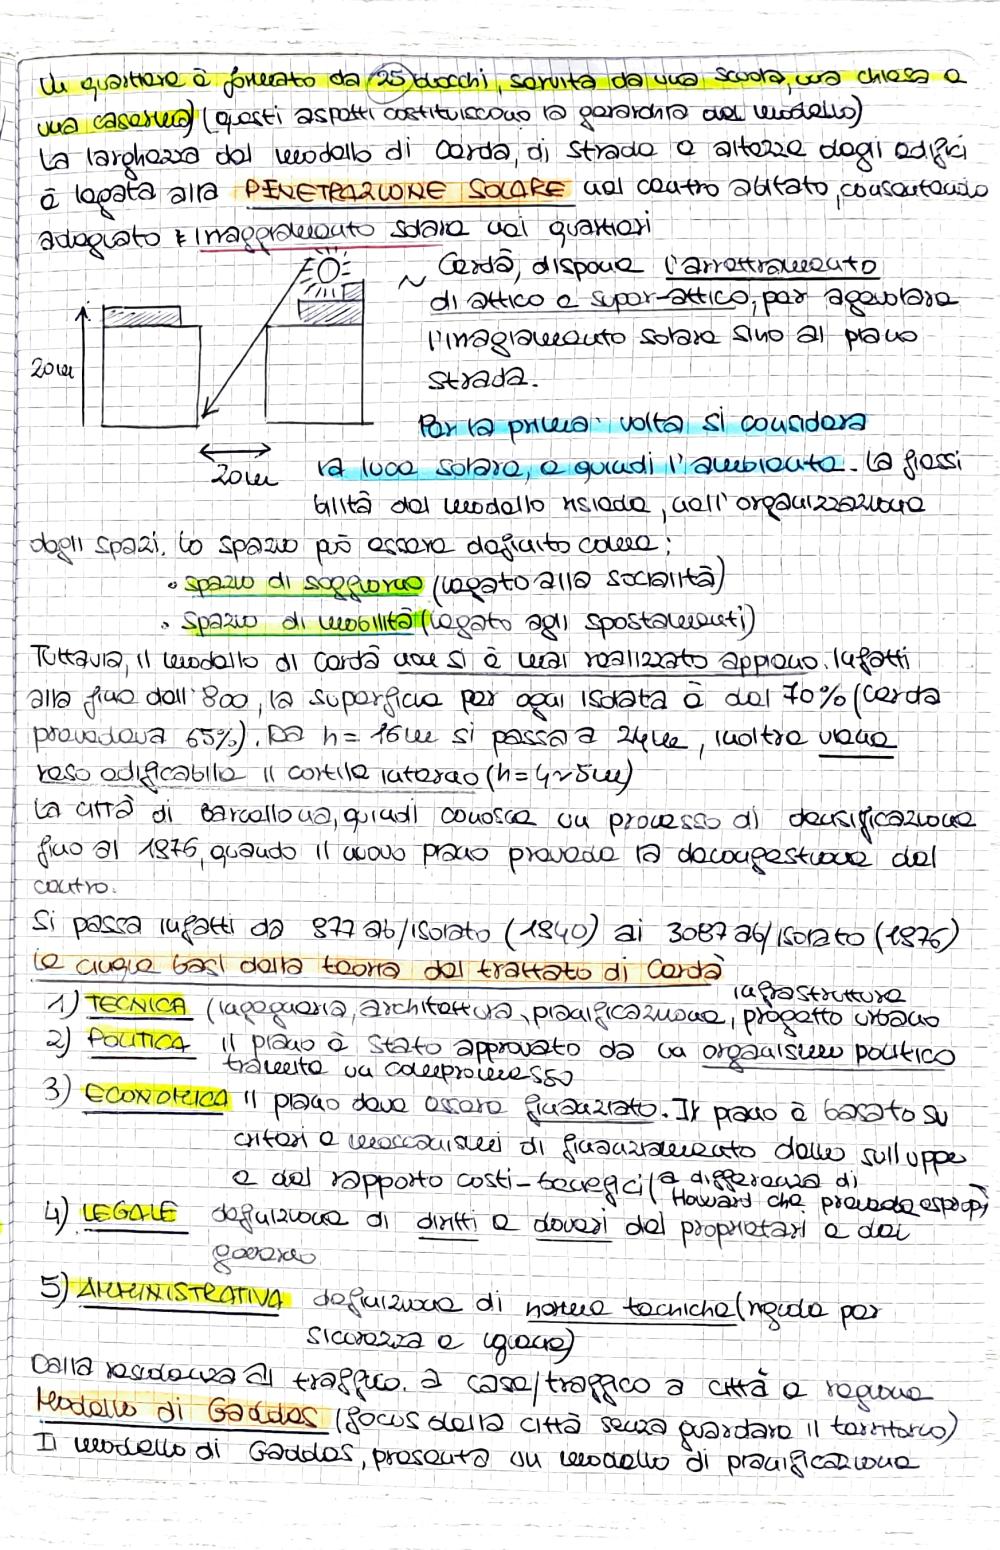 Un quartiere è formato da 25 blocchi, servita da una scuola, una chiesa e
una caserma) (questi aspetti costituiscono la gerarchia del modello)
La larghezza del modello di Cerdà, di strade e altezze degli edifici
è legata alla PENETRAZIONE SOLARE nel centro abitato, consentendo
adeguato irraggiamento solare nei quartieri
~ Cerdà, dispone l'arretramento
di attico e super-attico, per agevolare
l'irragiamento solare sino al piano
strada.
20m
Per la prima volta si considera
20m
la luce solare, e quindi l'ambiente. La flessi
bilità del modello risiede, nell'organizzazione
degli spazi. Lo spazio può essere definito come:
• spazio di soggiorno (legato alla socialità)
• spazio di mobilità (legato agli spostamenti)
Tuttavia, il modello di Cerdà non si è mai realizzato appieno. Infatti
alla fine dell'800, la superficie per ogni isolata è del 70% (Cerdà
prevedeva 65%). Da h= 16m si passa a 24m, inoltre viene
reso edificabile il cortile interno (h=4~5m)
La città di Barcellona, quindi conosce un processo di densificazione
fino al 1976, quando il nuovo piano prevede la decongestione del
centro.
Si passa infatti da 877 ab/isolato (1840) ai 3087 ab/isolato (1976)
Le cinque basi della teoria del trattato di Cerdà
infrastrutture
1) TECNICA (ingegneria, architettura, pianificazione, progetto urbano
2) POLITICA il piano è stato approvato da un organismo politico
tramite un compromesso
3) ECONOMICA il piano deve essere finanziato. Il piano è basato su
criteri e meccanismi di finanziamento dello sviluppo
e del rapporto costi-benefici (a differenza di
Howard che prevede espropi
4) LEGALE definizione di diritti e doveri dei proprietari e del
governo
5) AMMINISTRATIVA definizione di norme tecniche (rigide per
sicurezza e igiene)
Dalla residenza al traffico. a case/traffico a città e regione
Modello di Geddes (focus della città senza guardare il territorio)
Il modello di Geddes, presenta un modello di pianificazione